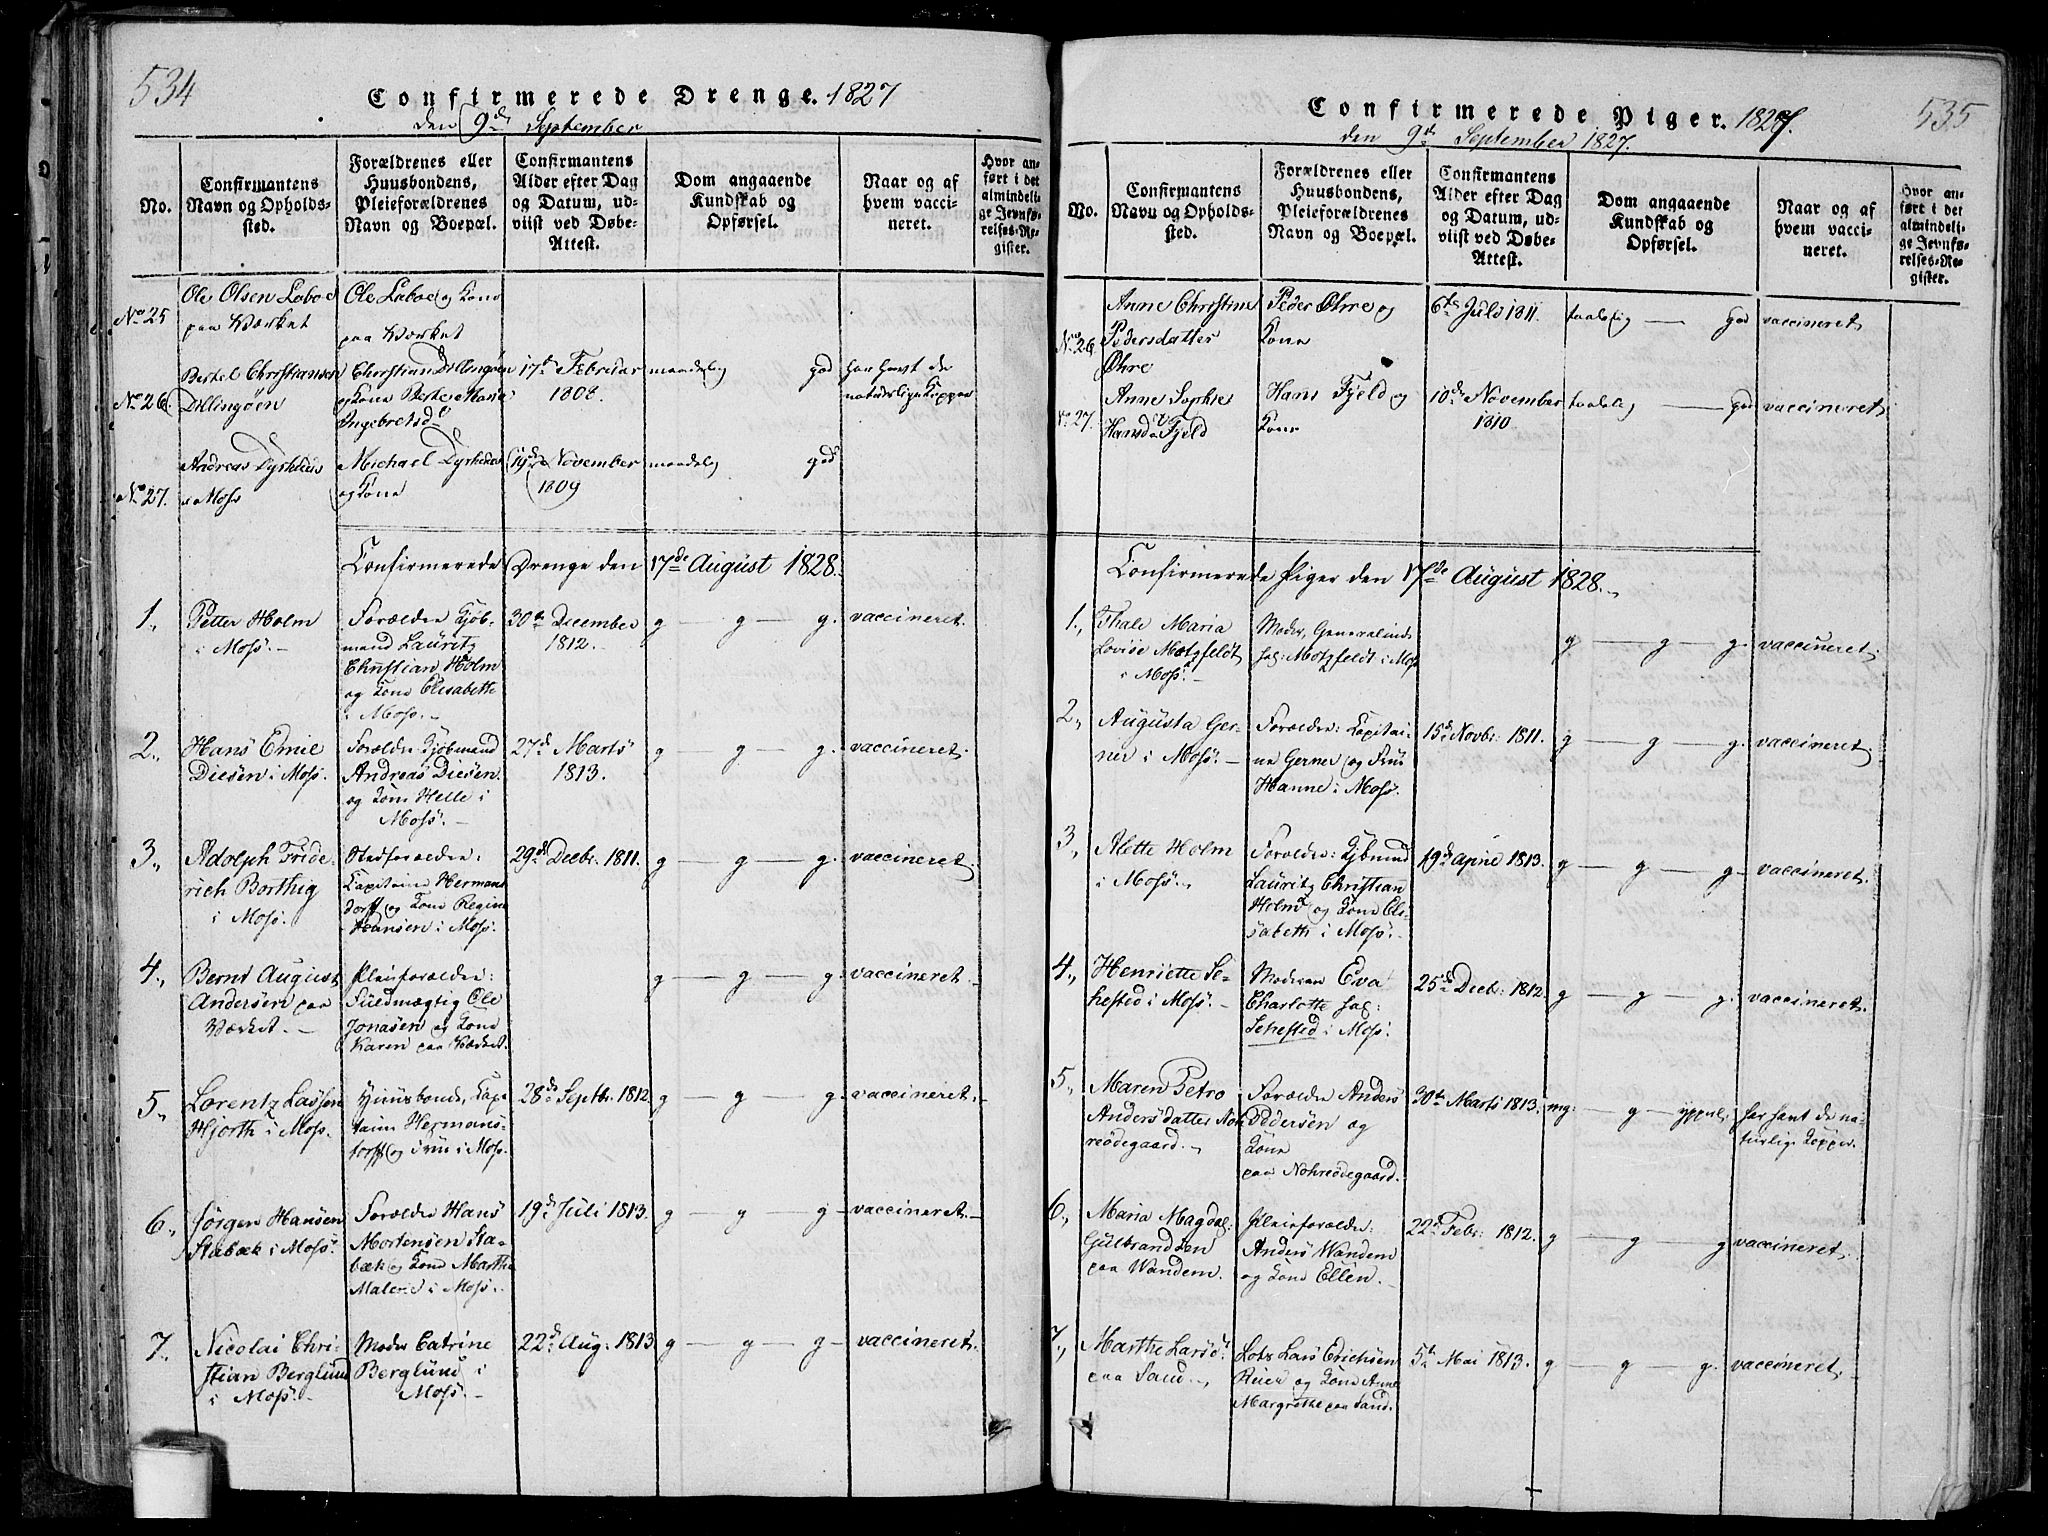 534
Confirmerede Drenge. 1827
den 9de September
No.
Confirmantens
Navn og Opholds-
sted.
Forældrenes eller
Huusbondens,
Pleieforældrenes
Navn og Boepæl.
Confirmantens
Alder efter Dag
og Datum, ud-
viist ved Døbe-
Attest.
Dom angaaende
Kundskab og
Opførsel.
Naar og af
hvem vacci-
neret.
Hvor an-
ført i det
almindeli-
ge Jevnfø-
relses-Re-
gister.
No 25
Ole Olsen Laboe
paa Værket
Ole Laboe og Kone
paa Værket
No 26
Bertel Christiansen
Dillingøen
Christian Dillingøen
og Kone Berte Maria
Ingebretsd
17de Februar
1808.
maadelig god
har havt de
naturlige Kopper
No 27.
Andreas Dyrhuus
Moss
Michael Dyrhuus
og Kone
19de November
1809
maadelig god
Confirmerede Drenge den 17de August 1828.
1.,
Petter Holm
i Moss.
Forældre Kjøb-
mand Lauritz
Christian Holm
og Kone Elisabeth
i Moss.
30te December
1812.
g — g — g.
vaccineret.
2.,
Hans Emil
Diesen i Moss.
Forældre: Kjøbmand
Andreas Diesen
og Kone Helle i
Moss.
27de Marts
1813.
g — g — g.
vaccineret.
3.,
Adolph Fride-
rich Borthig
i Moss.
Stedforældre:
Capitaine Hermans
dorff og Kone Regine
Hansen i Moss.
29de Decbr. 1811.
g — g — g.
vaccineret.
4.,
Bernt August
Andersen paa
Værket.
Pleieforældre:
Fuldmægtig Ole
Jonasen og Kone
Karen paa Værket.
g — g — g.
vaccineret.
5.,
Lorentz Lassen
Hjorth i Moss.
Huusbond, Capi-
taine Hermans-
torff og Frue i Moss.
28de Septbr. 1812
g — g — g.
vaccineret.
6.,
Jørgen Hansen
Stabæk i Moss.
Forældre Hans
Mortensen Sta-
bæk og Kone Marthe
Malene i Moss.
19de Juli 1813.
g — g — g
vaccineret.
7.,
Nicolai Chri-
stian Berglund
i Moss.
Moder Catrine
Berglund i
Moss.
22de Aug: 1813
g — g — g
vaccineret.
535
Confirmerede Piger. 1827.
den 9de September 1827.
No.
Confirmantens
Navn og Opholds-
sted.
Forældrenes eller
Huusbondens,
Pleieforældrenes
Navn og Boepæl.
Confirmantens
Alder efter Dag
og Datum, ud-
viist ved Døbe-
Attest.
Dom angaaende
Kundskab og
Opførsel.
Naar og af
hvem vacci-
neret.
Hvor an-
ført i det
almindeli-
ge Jevnfø-
relses-Re-
gister.
No 26
Anne Christine
Pedersdatter
Øhre
Peder Øhre og
Kone
6te Juli 1811.
taalelig — god
vaccineret
No 27.
Anne Sophie
Hansd Fjeld
Hans Fjeld og
Kone
10de November
1810
taalelig — god
vaccineret
Confirmerede Piger den 17de August 1828.
1.,
Thale Maria
Lovise Motzfeldt
i Moss.
Moder, Generalinde
sal: Motzfeldt i Moss
g — g — g.
vaccineret.
2.,
Augusta Ger-
ner i Moss.
Forældre: Capitai-
ne Gerner og Frue
Hanne i Moss.
15de Novbr. 1811.
g — g — g.
vaccineret.
3.,
Alette Holm
i Moss.
Forældre: Kjøbmand
Lauritz Christian
Holm og Kone Eli-
sabeth i Moss.
19de April 1813.
g — g — g
vaccineret.
4.,
Henriette Se-
hested i Moss.
Moderen Eva
Charlotte sal:
Sehested i Moss.
25de Decbr. 1812.
g — g — g.
vaccineret.
5.,
Maren Petro
Andersdatter Noh
reødegaard.
Forældre Anders
Pedersen og
Kone
paa Nohreødegaard.
30te Marts 1813.
mg: — g —
har havt de na-
turlige Kopper.
6.,
Maria Magdal:
Gulbrandsen
paa Wandem.
Pleieforældre:
Anders Wandem
og Kone Ellen.
22de Febr: 1812.
g — g — g
vaccineret.
7.,
Marthe Larsd.
paa Sand.
Lods Lars Erichsen
Reier og Kone Anne
Margrethe paa Sand.
5te Mai 1813.
g — g — g.
vaccineret.